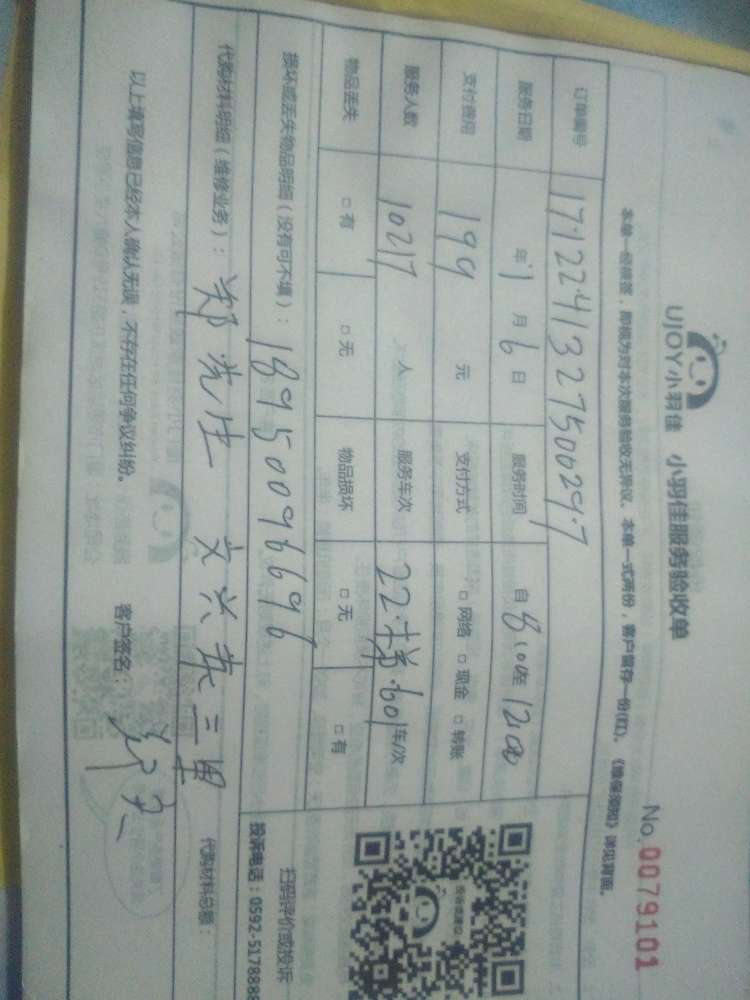 UJOY小羽佳 小羽佳服务验收单
No.0079101
本单一经签署，即视为对本次服务验收无异议。本单一式两份，客户留存一份(红)。《维保须知》详见背面。
订单编号 17122413275006297
服务日期 年 1 月 6 日 服务时间 自 8:00至 1200
支付费用 199 元 支付方式 □ 网络 □ 现金 □ 转账
服务人数 10217 人 服务车次 22.梯.601 车/次
物品丢失 □ 有 □ 无 物品损坏 □ 无 □ 有
损坏或丢失物品明细（没有可不填）： 18950096696
代购材料明细（维修业务）： 郑先生 文兴东三里 代购材料总额：
以上填写信息已经本人确认无误，不存在任何争议纠纷。 客户签名：
扫码评价或投诉
投诉电话：0592-5178888